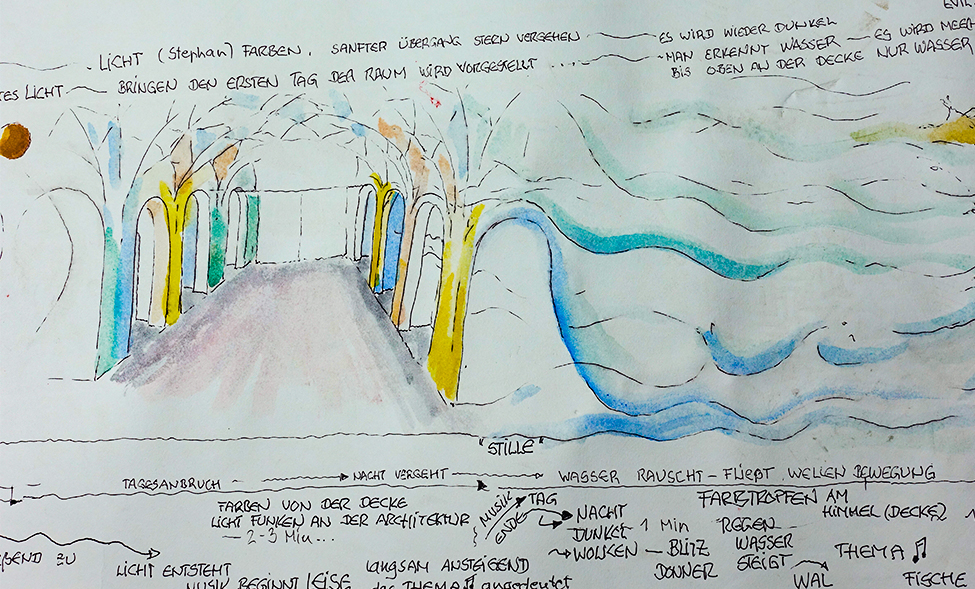 LICHT (Stephan) FARBEN, SANFTER ÜBERGANG STERN VERGEHEN
BRINGEN DEN ERSTEN TAG DER RAUM WIRD VORGESTELLT ...
LICHT
ES WIRD WIEDER DUNKEL
MAN ERKENNT WASSER
BIS OBEN AN DER DECKE NUR WASSER
ES WIRD
"STILLE"
TAGESANBRUCH NACHT VERGEHT WASSER RAUSCHT - FLIEßT WELLEN BEWEGUNG
FARBEN VON DER DECKE
LICHT FUNKEN AN DER ARCHITEKTUR
- 2-3 Min...
LICHT ENTSTEHT
MUSIK BEGINNT LEISE
langsam ANSTEIGEND
das THEMA angedeutet
MUSIK
ENDE
TAG
NACHT
DUNKEL - 1 Min
WOLKEN - BLITZ
DONNER
FARBTROPFEN AM
HIMMEL (DECKE)
REGEN
WASSER
STEIGT
WAL
THEMA
FISCHE
ZU